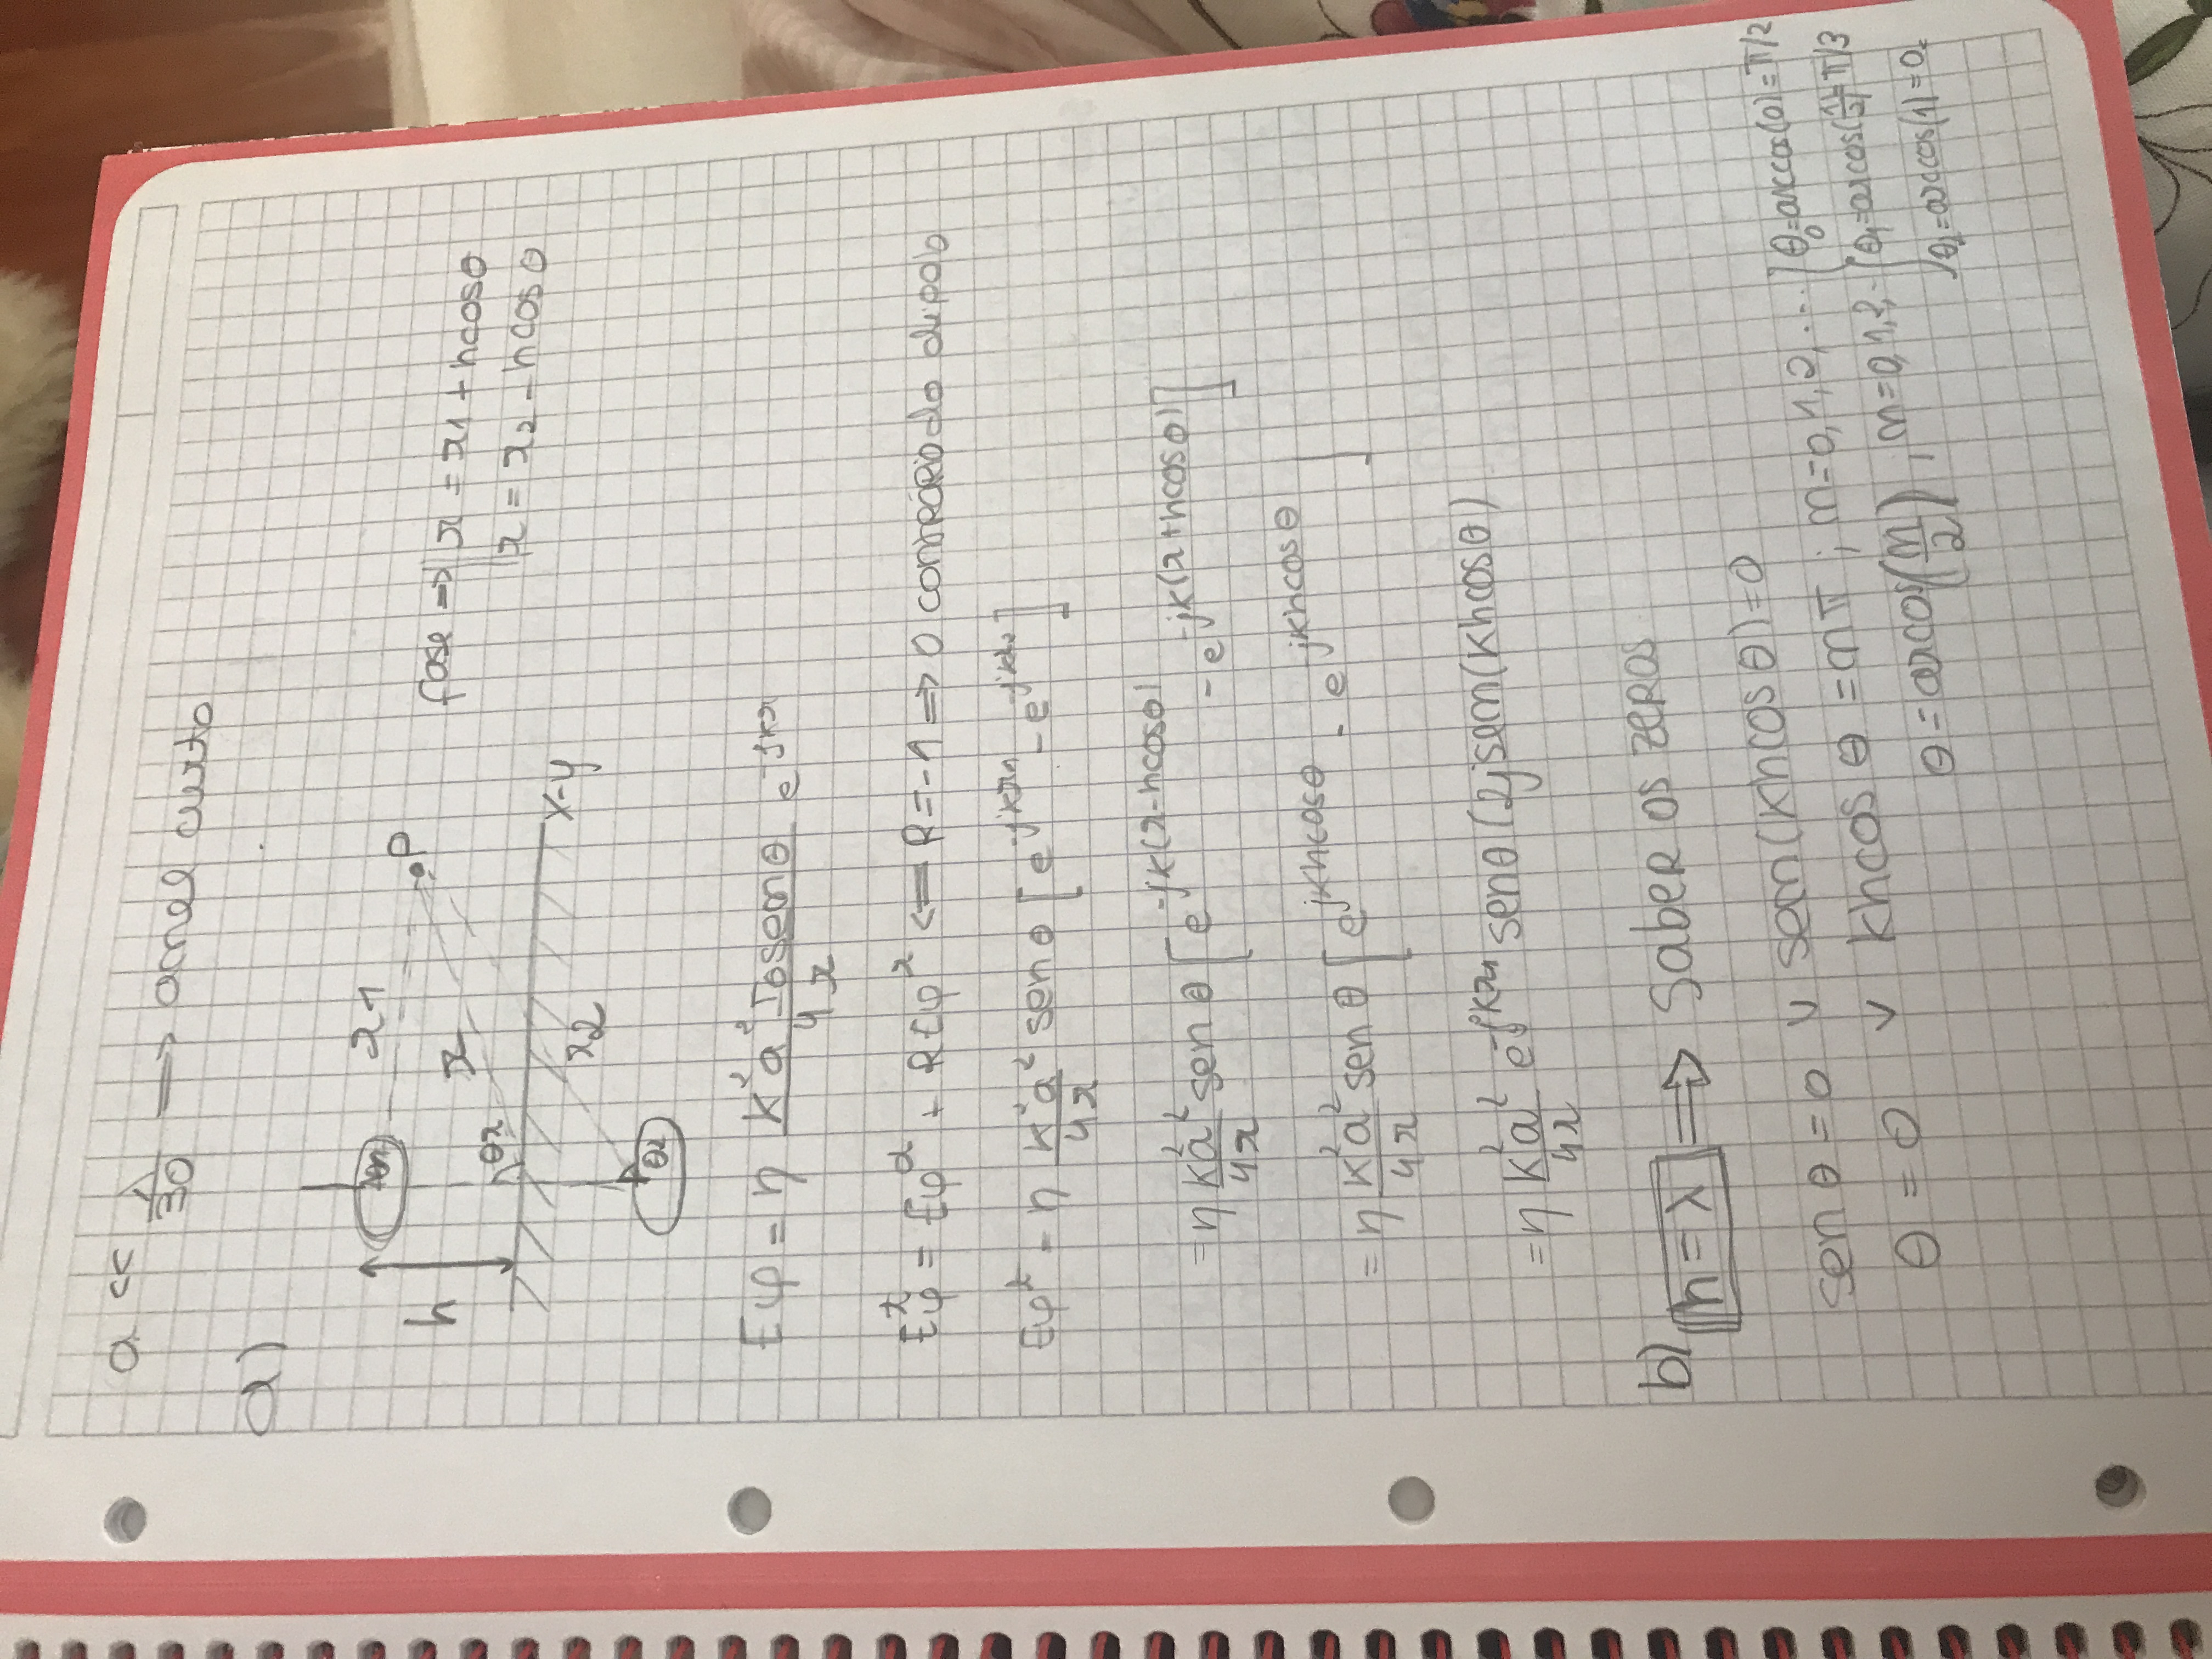 a << λ/30 ⟹ anel curto
a)
h
θ1
r1
P
r
θr
x-y
r2
θ2
fase ⟹ r = r1 + hcosθ
r = r2 - hcosθ
Eφ = η k²a²I0senθ/4r e^-jkr
Eφ^t = Eφ^d + REφ^r <== R = -1 => O contrário do dipolo
Eφ^t = η k²a²/4r senθ [e^-jkr1 - e^-jkr2]
= η k²a²/4r senθ [e^-jk(r-hcosθ) - e^-jk(r+hcosθ)]
= η k²a²/4r senθ [e^jkhcosθ - e^jkhcosθ]
= η k²a²/4r e^-jkr1 senθ (2jsen(khcosθ)
b) h = λ ⟹ Saber os zeros
senθ = 0 ∨ sen(khcosθ) = 0
θ = 0 ∨ khcosθ = nπ ; n = 0, 1, 2, ...
θ = arcos(n/2) ; n = 0, 1, 2, -
θ0 = arccos(0) = π/2
θ1 = arcos(1/2) = π/3
θ2 = arccos(1) = 0